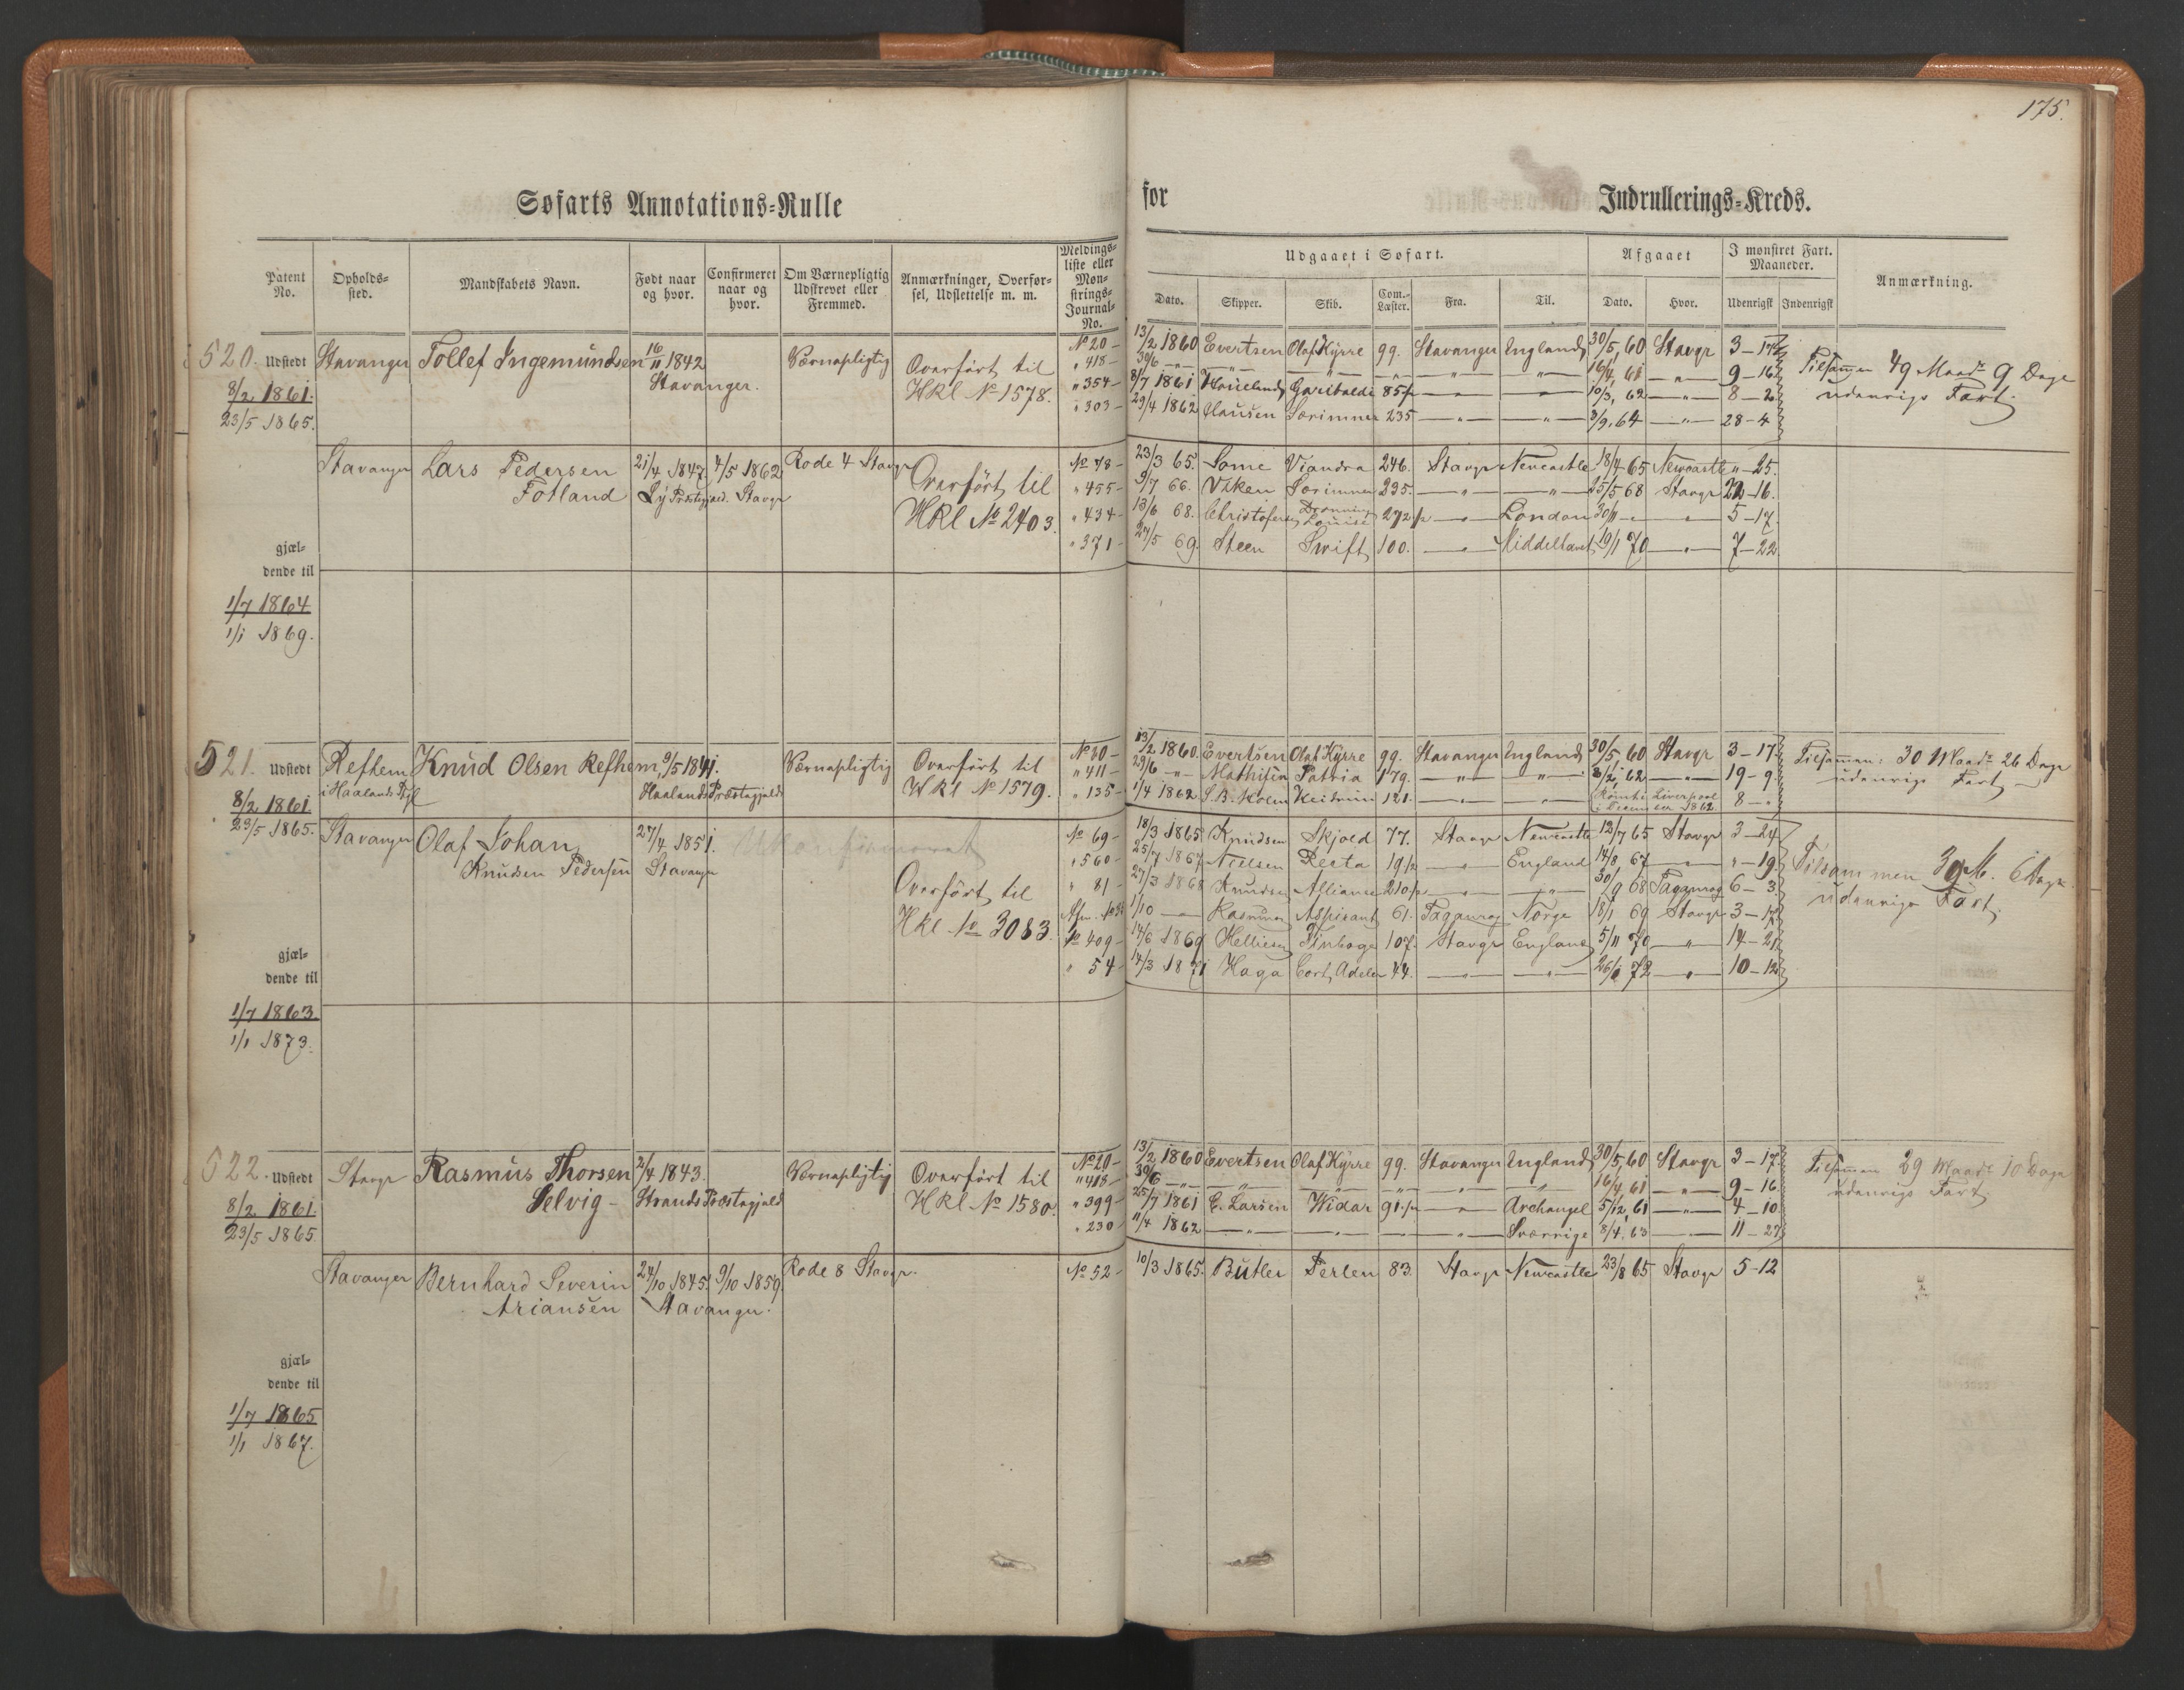 175.
Søfarts Annotations-Rulle for Indrullerings-Kreds.
Patent No. Opholds-sted. Mandskabets Navn. Født naar og hvor. Confirmeret naar og hvor. Om Værnepligtig Udskrevet eller Fremmed. Anmærkninger, Overførsel, Udslettelse m. m. Meldings-liste eller Mønstrings-Journal-No.
Udgaaet i Søfart. Afgaaet I mønstret Fart. Maaneder. Anmærkning.
Dato. Skipper. Skib. Com.-Læster. Fra. Til. Dato. Hvor. Udenrigsk Indenrigsk
520. Udstedt Stavanger Tollef Ingemundsen 16/11 1842 Værnepligtig Overført til No 20 - 13/2 1860 Evertsen Olaf Kyrre 99. Stavanger England 30/5, 60 Stavgr 3-17
" 418 - 30/6 -"- -"- -"- -"- -"- -"- 16/4, 61 -"- 9-16 Tilsammen 49 Maadr 9 Dage
8/2 1861. Stavanger. HRl No 1578. " 354 - 8/7 1861 Garibaldi 85 -"- -"- 10/3, 62 -"- 8-2 udenrigs Fart.
23/5 1865. " 303 - 29/4 1862 Clausen Særimner 235 -"- -"- 3/9, 64 -"- 28-4
Stavanger Lars Pedersen 21/4 1847 4/5 1862 Rode 4 Stavgr Overført til No 78 - 23/3 65. Some Viandra 246. Stavgr Newcastle 18/4 65 Newcastle "-25.
Fotland Ly Præstegjæld. Stavgr " 455 - 9/7 66. Viken Særimner 235. -"- -"- 25/5 68 Stavgr 22-16.
HRl No 2403. " 434 - 13/6 68. Christofersen Dronning Louise 272 -"- London 30/11 -"- -"- 5-17.
" 371 - 27/5 69. Steen Swift 100. -"- Middelhavet 19/1 70 -"- 7-22
gjæl-
dende til
1/7 1864
1/1 1869.
521. Udstedt Refhem Knud Olsen Refhem 9/5 1841. Værnepligtig Overført til No 20 - 13/2 1860. Evertsen Olaf Kyrre 99. Stavanger England 30/5, 60 Stavgr 3-17
i Haalands Pgl Haalands Præstegjæld HRl No 1579. " 411 - 29/6 -"- Mathisen Patria 179. -"- -"- 8/2, 62 -"- 19-9 Tilsammen: 30 Maadr 26 Dage
8/2 1861 " 135 - 1/4 1862 S.B. Holm Heidrun 121. -"- -"- Rømt i Liverpool i Decemder 1862. 8-" udenrigs Fart
23/5 1865.
Stavanger Olaf Johan 27/4 1851. Ukonfirmeret No 69 - 18/3 1865. Knudsen Skjold 77. Stavgr Newcastle 12/7 65 Stavgr 3-24
Knudsen Pedersen Stavanger " 560 - 25/7 1867 Nielsen Recta 19 -"- England 14/8, 67 -"- "-19.
Overført til " 81 - 27/3 1868 Knudsen Alliance 210 -"- -"- 30/9 68 Taganrog 6-3 Tilsammen 39 M. 6 Dage
HRl No 3083. 1/10 -"- Rasmus Aspirant 61. Taganrog Norge 18/1 69 Stavgr 3-17 udenrigs Fart.
No 409 - 14/6 1869 Helliesen Finboge 107. Stavgr England 5/11 70 -"- 14-21
" 54 - 14/3 1871 Haga Cort Adeler 44. -"- -"- 26/1 72 -"- 10-12
gjæl-
dende til
1/7 1863.
1/1 1873.
522. Udstedt Stavgr Rasmus Thorsen 2/4 1843. Værnepligtig Overført til No 20 - 13/2 1860 Evertsen Olaf Kyrre 99. Stavanger England 30/5, 60 Stavgr 3-17
Selvig - Strands Præstegjæld HRl No 1580. " 418 - 30/6 -"- -"- -"- -"- -"- -"- 16/4, 61 -"- 9-16 Tilsammen 29 Maadr 10 Dage
8/2 1861. " 399 - 25/7 1861 E. Larsen Widar 91. -"- Archangel 5/12, 61 -"- 4-10 udenrigs Fart
23/5 1865 " 230 - 11/4 1862 -"- -"- -"- -"- Sverrige 8/4, 63 -"- 11-27
Stavanger Bernhard Severin 24/10 1845. 9/10 1859. Rode 8 Stavgr. No 52 - 10/3 1865. Butler Perlen 83. Stavgr Newcastle 23/8 65 Stavgr 5-12
Ariansen Stavanger.
gjæl-
dende til
1/7 1865
1/1 1867.